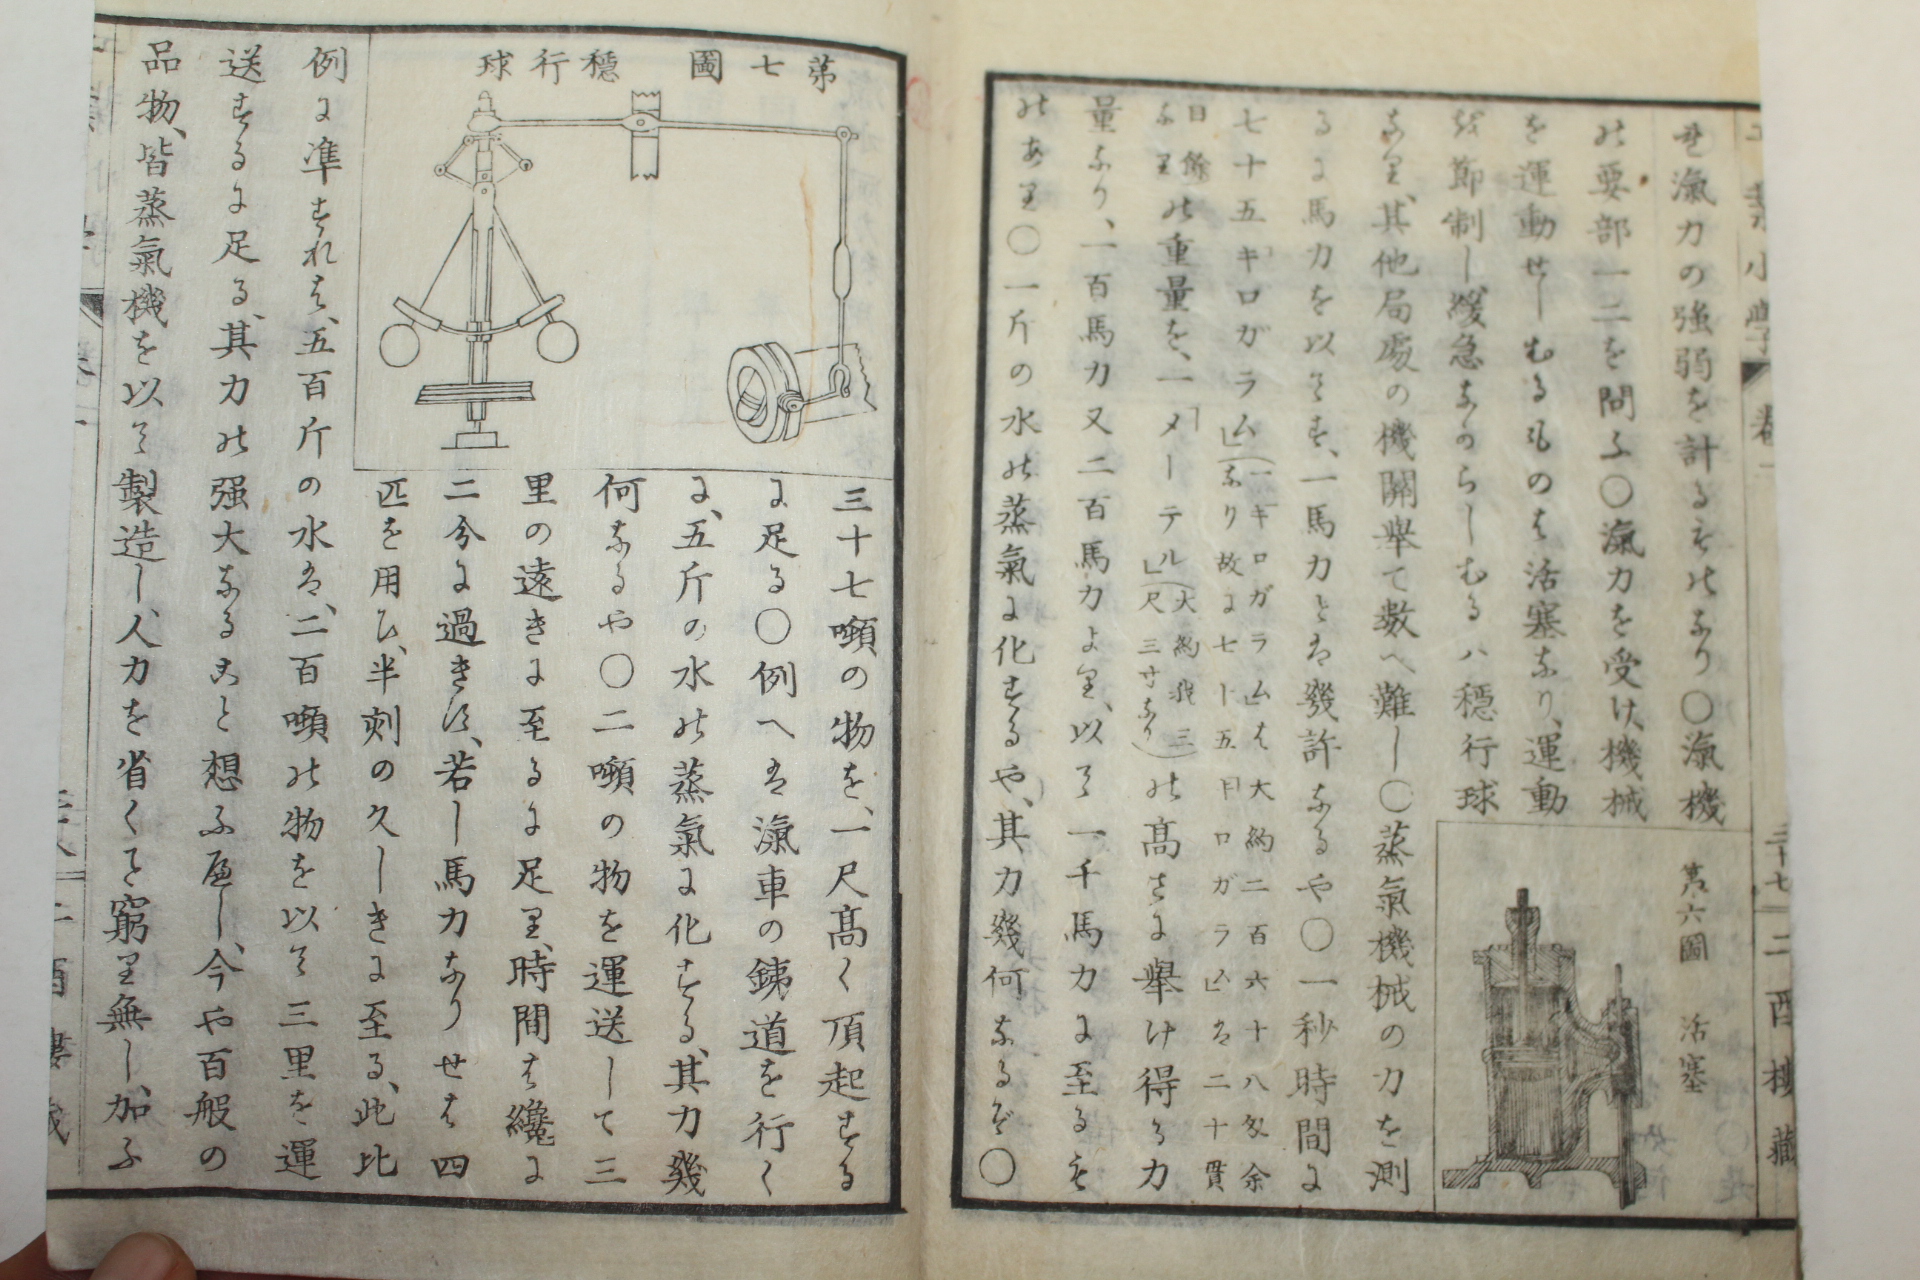 せ滊力の強弱を計るものなり〇滊機
の要部一二を問ふ〇滊力を受け、機械
を運動せしむるものは活塞なり、運動
を節制し、緩急なからしむるハ穏行球
なり、其他局処の機関挙て数へ難し〇蒸氣機械の力を測
るに馬力を以てす、一馬力とは幾許なるや〇一秒時間に
七十五キロガラム(一キロガラムは大約二百六十八匁余
なり故に七十五キロガラムは二十貫
目餘
なりの重量を、一メーテル(大約我三
尺三寸なり)の高さに挙け得る力
量なり、一百馬力又二百馬力より、以て一千馬力に至るも
のあり〇一斤の水の蒸氣に化するや、其力幾何なるぞ〇
第六圖 活塞
三十七
二酉樓藏
第七圖 穏行球
三十七噸の物を、一尺髙く頂起する
に足る〇例へは滊車の銕道を行く
に、五斤の水の蒸氣に化する、其力幾
何なるや〇二噸の物を運送して三
里の遠きに至るに足り、時間は纔に
二分に過きす、若し馬力なりせは四
匹を用ひ、半刻の久しきに至る、此比
例に準すれは、五百斤の水は、二百噸の物を以て三里を運
送するに足る、其力の强大なること想ふ可し、今や百般の
品物、皆蒸氣機を以て製造し、人力を省くこと窮り無し、加ふ